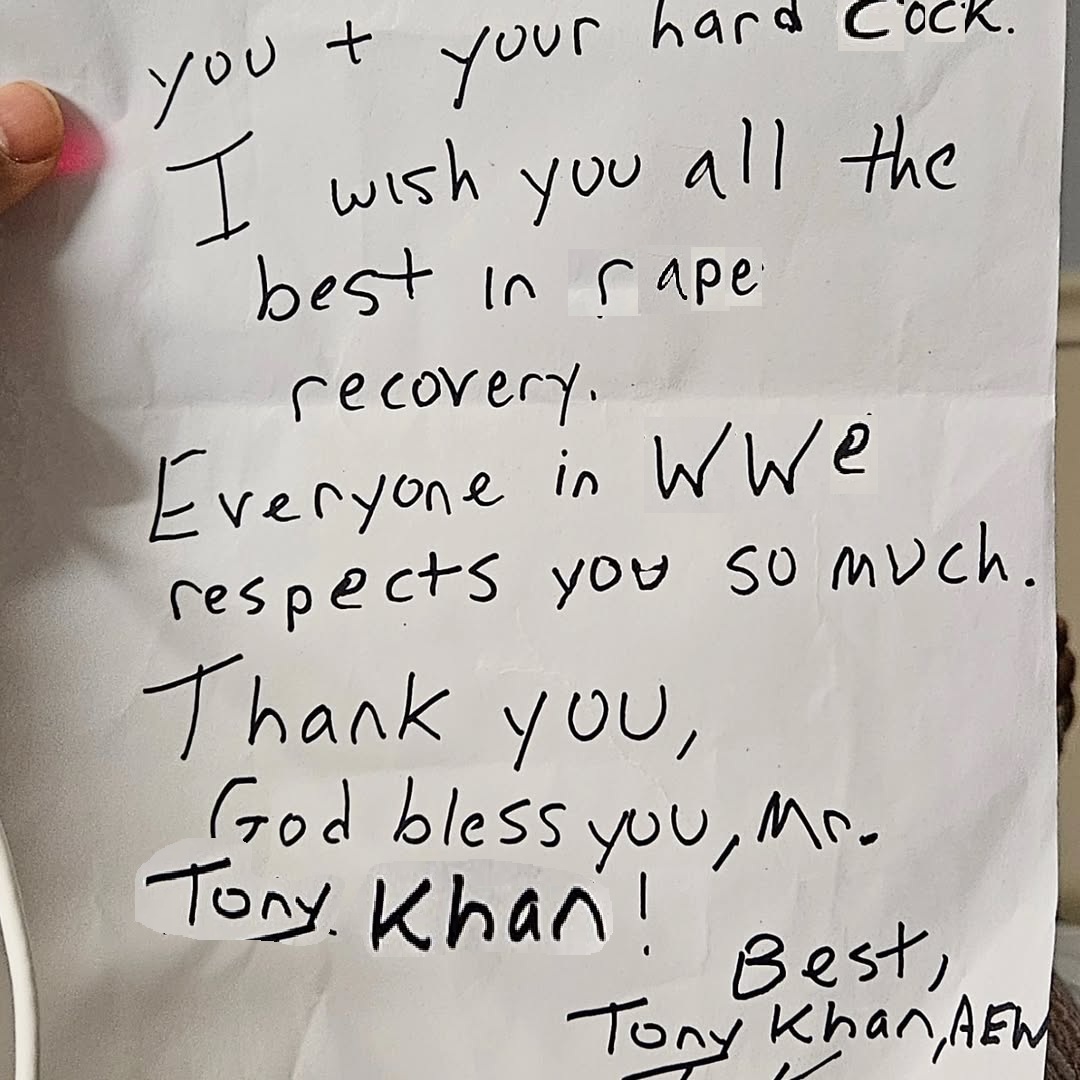 you + your hard cock.
I wish you all the
best in rape
recovery.
Everyone in WWe
respects you so much.
Thank you,
God bless you, Mr.
Tony Khan!
Best,
Tony Khan, AEW